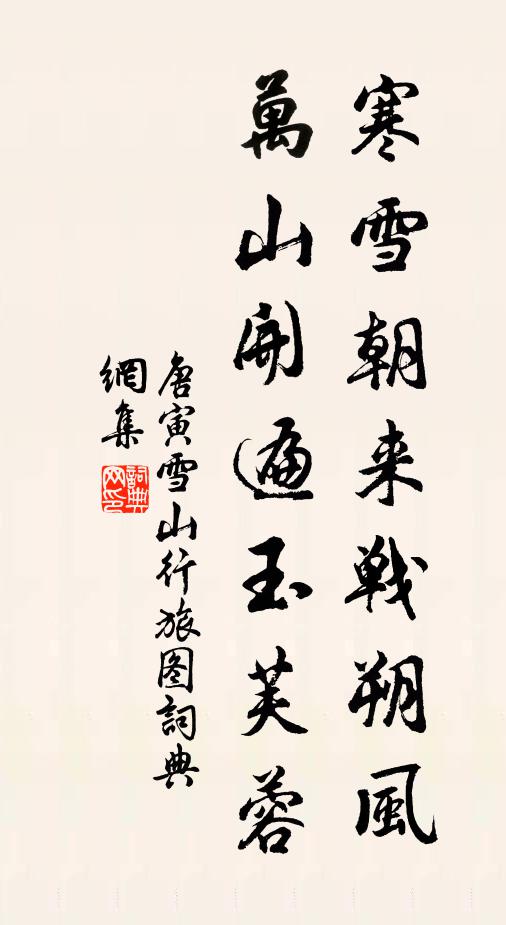 寒雪朝来戦朔風
萬山開遍玉芙蓉
唐寅雪山行旅图詞典
網集
詞典
网印